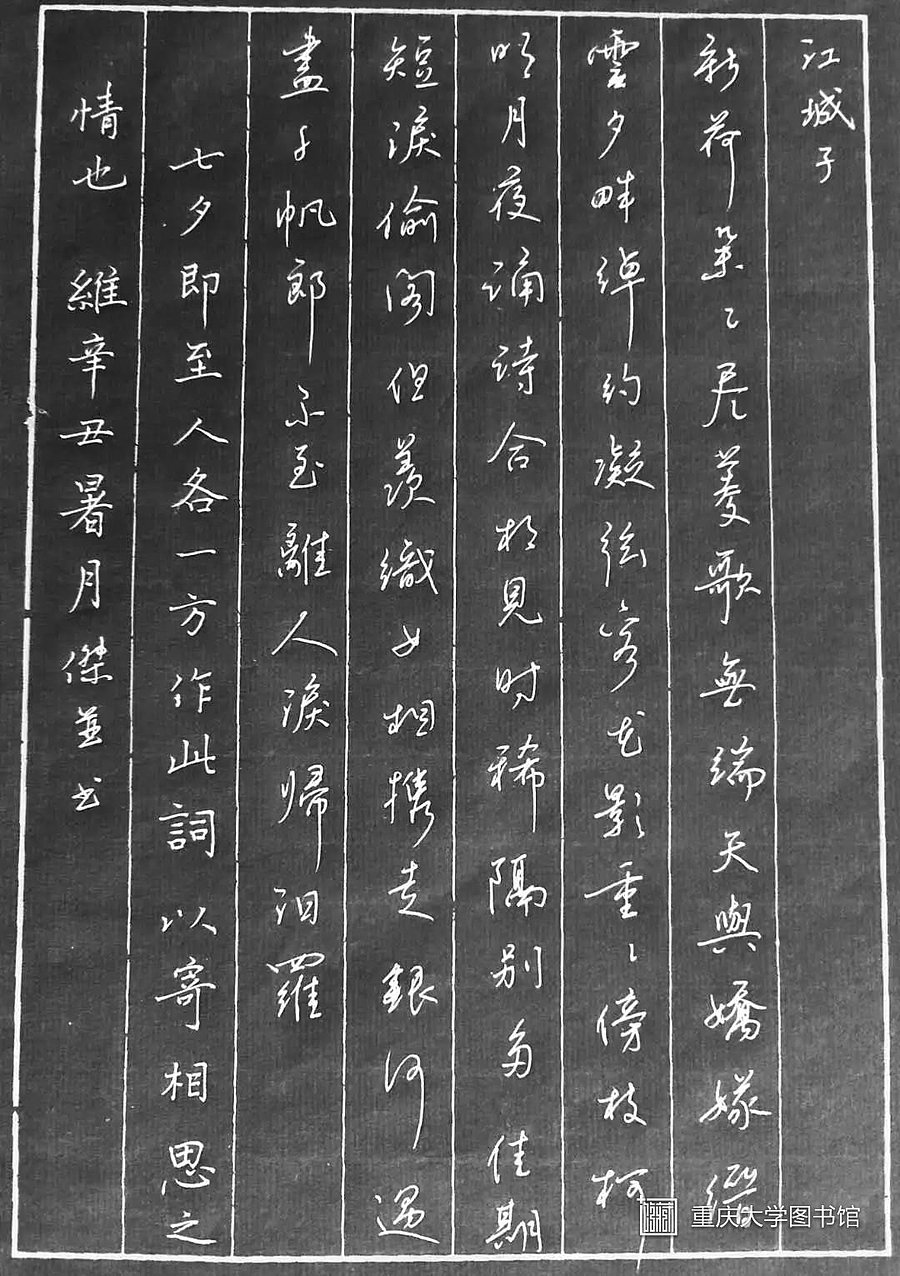 江城子
新荷朵〻尽菱歌無端天與嬌
雲夕畔綽約凝弦客花影重〻傍枝柯
明月夜誦詩合相見时稀隔别多 佳期
短淚偷阁但羡織女相携走銀河過
盡千帆郎不至離人淚歸汨羅
七夕即至人各一方作此詞 以寄相思之
情也 維辛丑暑月傑並书
重庆大学图书馆